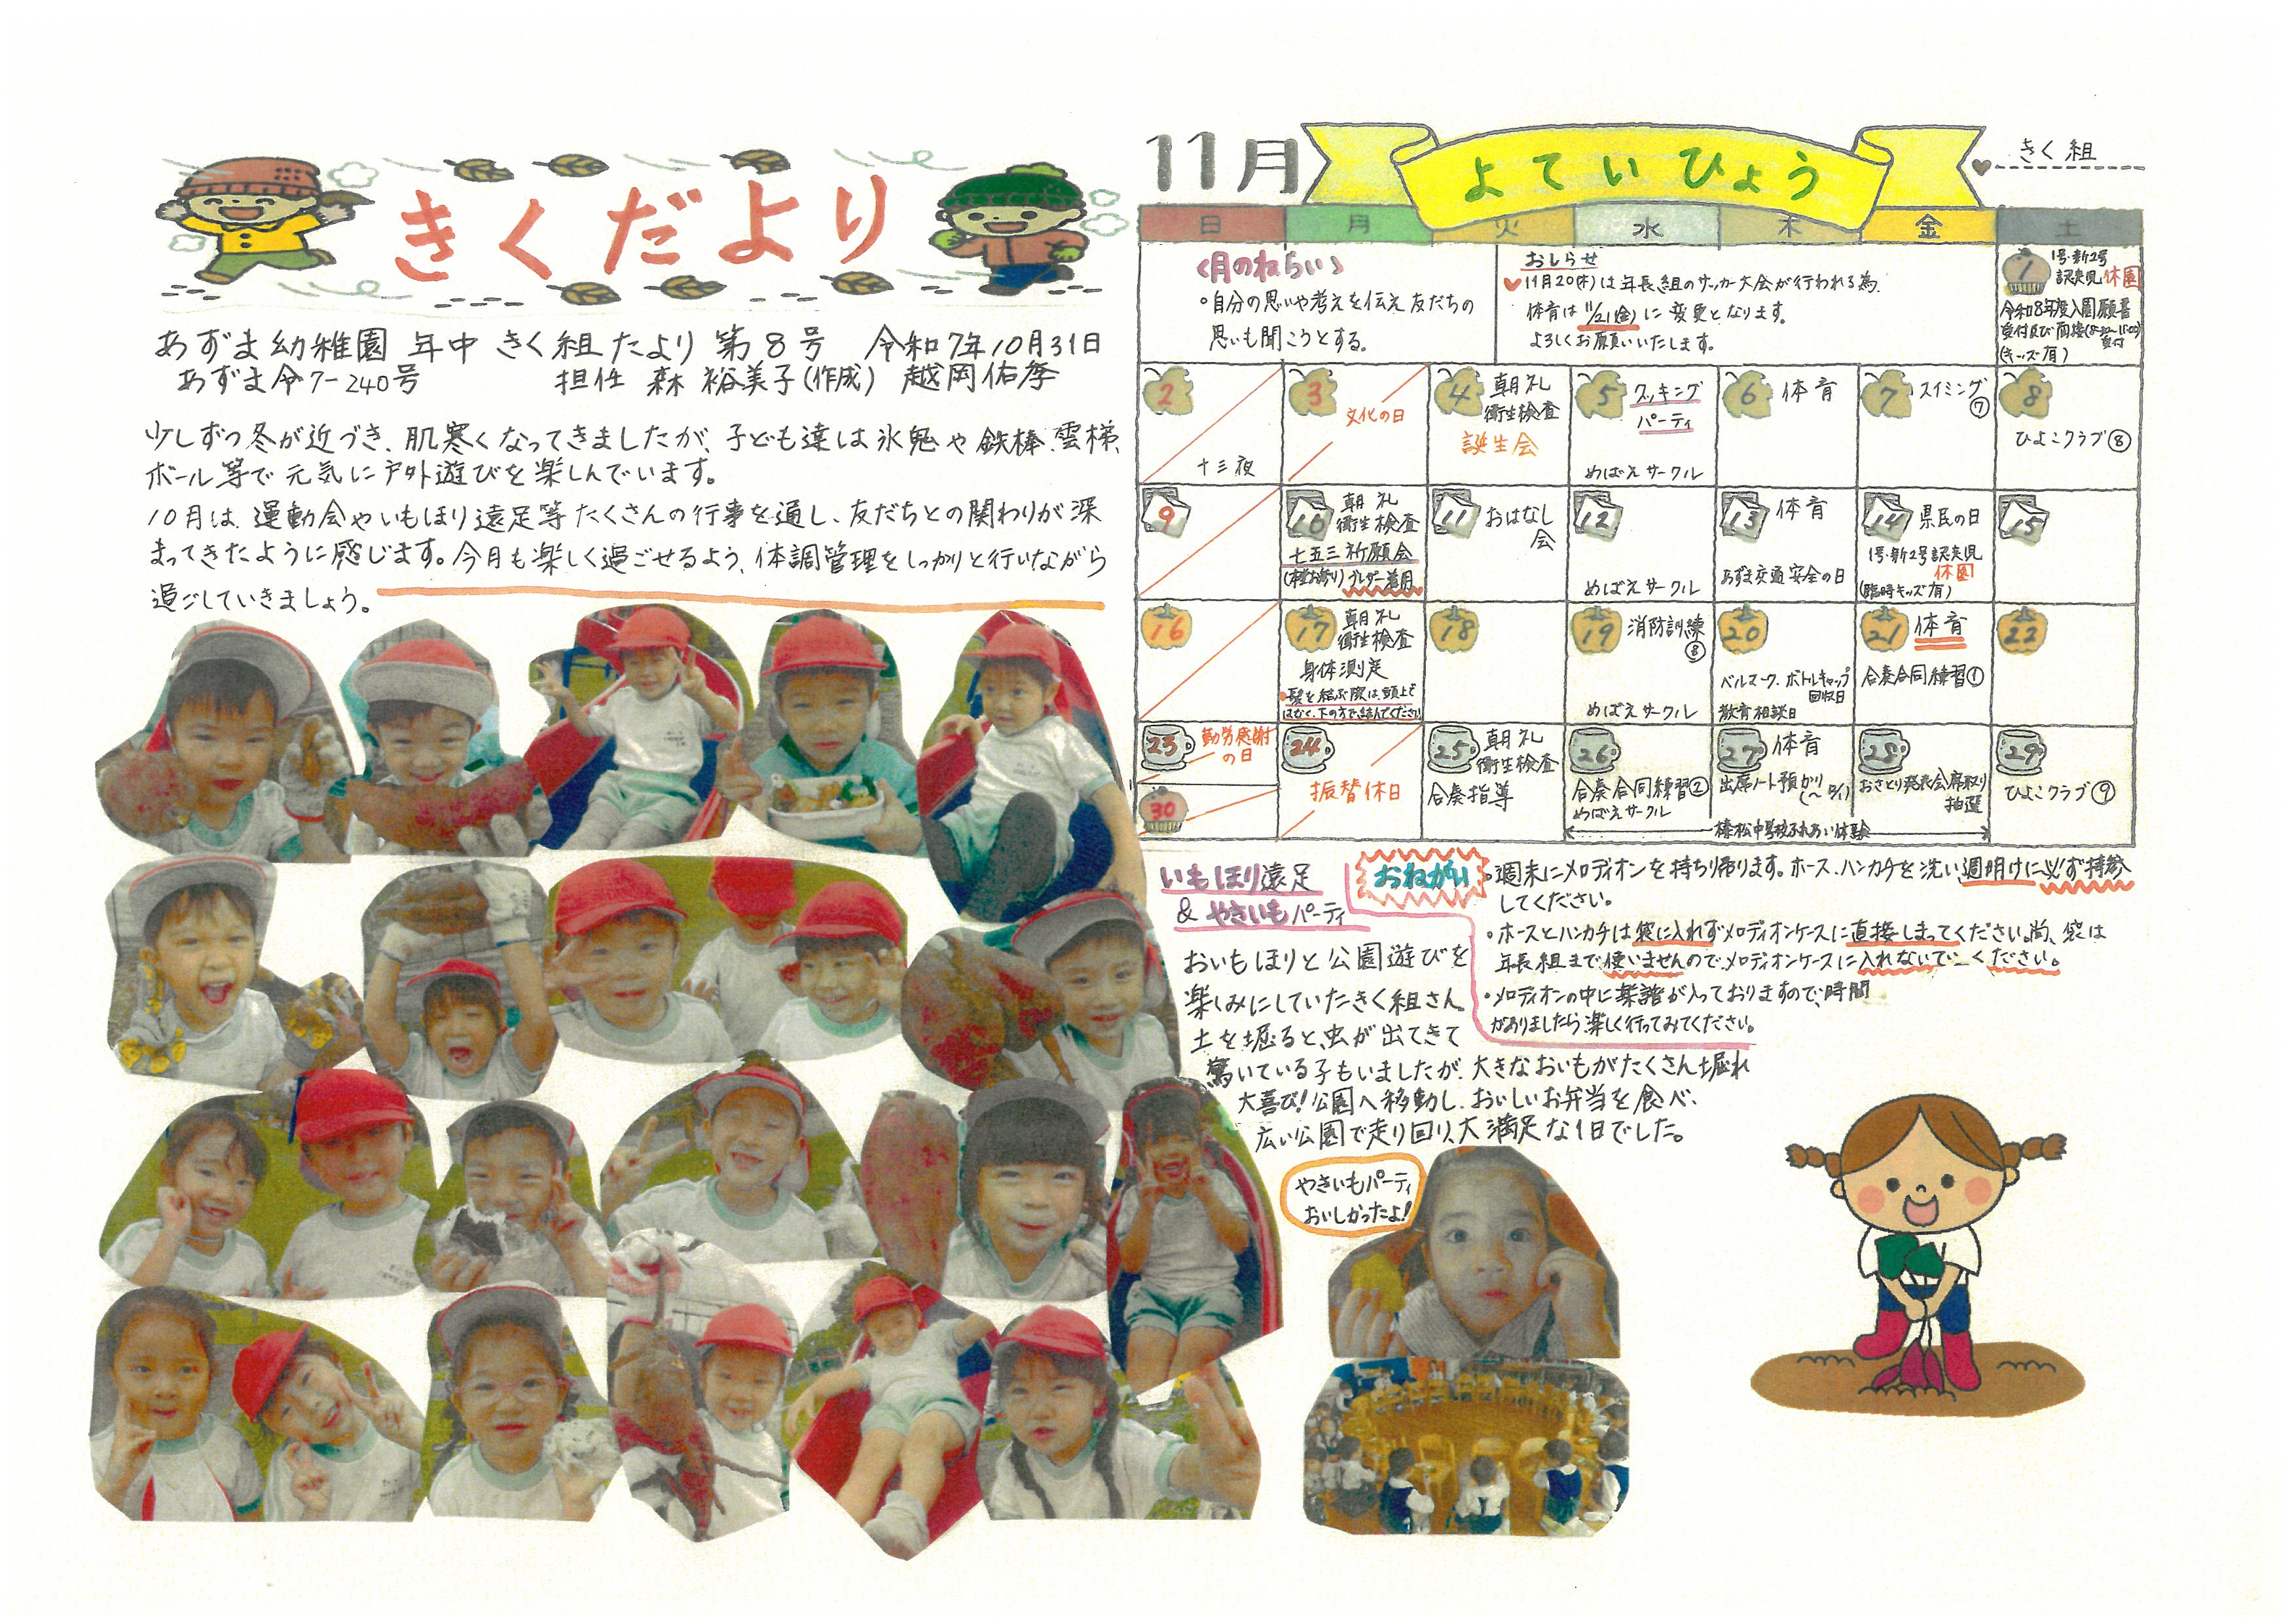 きくだより
あずま幼稚園 年中 きく組だより 第8号 令和7年10月31日
あずま令7-240号 担任 森 裕美子(作成) 越岡佑季
少しずつ冬が近づき、肌寒くなってきましたが、子ども達は氷鬼や鉄棒、雲梯、
ボール等で元気に戸外遊びを楽しんでいます。
10月は、運動会やいもほり遠足等たくさんの行事を通し、友だちとの関わりが深
まってきたように感じます。今月も楽しく過ごせるよう、体調管理をしっかりと行いながら
過ごしていきましょう。
11月 よていひょう きく組
日 月 火 水 木 金 土
<月のねらい>
・自分の思いや考えを伝え友だちの
思いも聞こうとする。
おしらせ
♥11月20(木)は年長組のサッカー大会が行われる為、
体育は11/21(金)に変更となります。
よろしくお願いいたします。
1 1号・新2号
認定児 休園
令和8年度入園願書
受付及び面接(8:30~11:00)
受付
(キッズ有)
2 十三夜
3 文化の日
4 朝礼
衛生検査
誕生会
5 クッキング
パーティ
めばえサークル
6 体育
7 スイミング⑦
8 ひよこクラブ⑧
9
10 朝礼
衛生検査
七五三祈願会
(本堂お参り)ブレザー着用
11 おはなし
会
12 めばえサークル
13 体育
あずま交通安全の日
14 県民の日
1号・新2号認定児
休園
(臨時キッズ有)
15
16
17 朝礼
衛生検査
身体測定
・髪を結ぶ際は、頭上で
はなく、下の方で結んでください
18
19 消防訓練⑧
めばえサークル
20 ベルマーク、ボトルキャップ
回収日
教育相談日
21 体育
合奏合同練習①
22
23 勤労感謝
の日
24 振替休日
25 朝礼
衛生検査
合奏指導
26 合奏合同練習②
めばえサークル
27 体育
出席ノート預かり
(~12/1)
28 おさとり発表会席取り
抽選
29 ひよこクラブ⑨
30
中学校ふれあい体験
いもほり遠足
&やきいもパーティ
おいもほりと公園遊びを
楽しみにしていたきく組さん。
土を掘ると、虫が出てきて
驚いている子もいましたが、大きなおいもがたくさん掘れ
大喜び!公園へ移動し、おいしいお弁当を食べ、
広い公園で走り回り、大満足な1日でした。
おねがい
・週末にメロディオンを持ち帰ります。ホース、ハンカチを洗い、週明けに必ず持参
してください。
・ホースとハンカチは袋に入れずメロディオンケースに直接しまってください。尚、袋は
年長組まで使いませんのでメロディオンケースに入れないでください。
・メロディオンの中に楽譜が入っておりますので、時間
がありましたら楽しく行ってみてください。
やきいもパーティ
おいしかったよ!